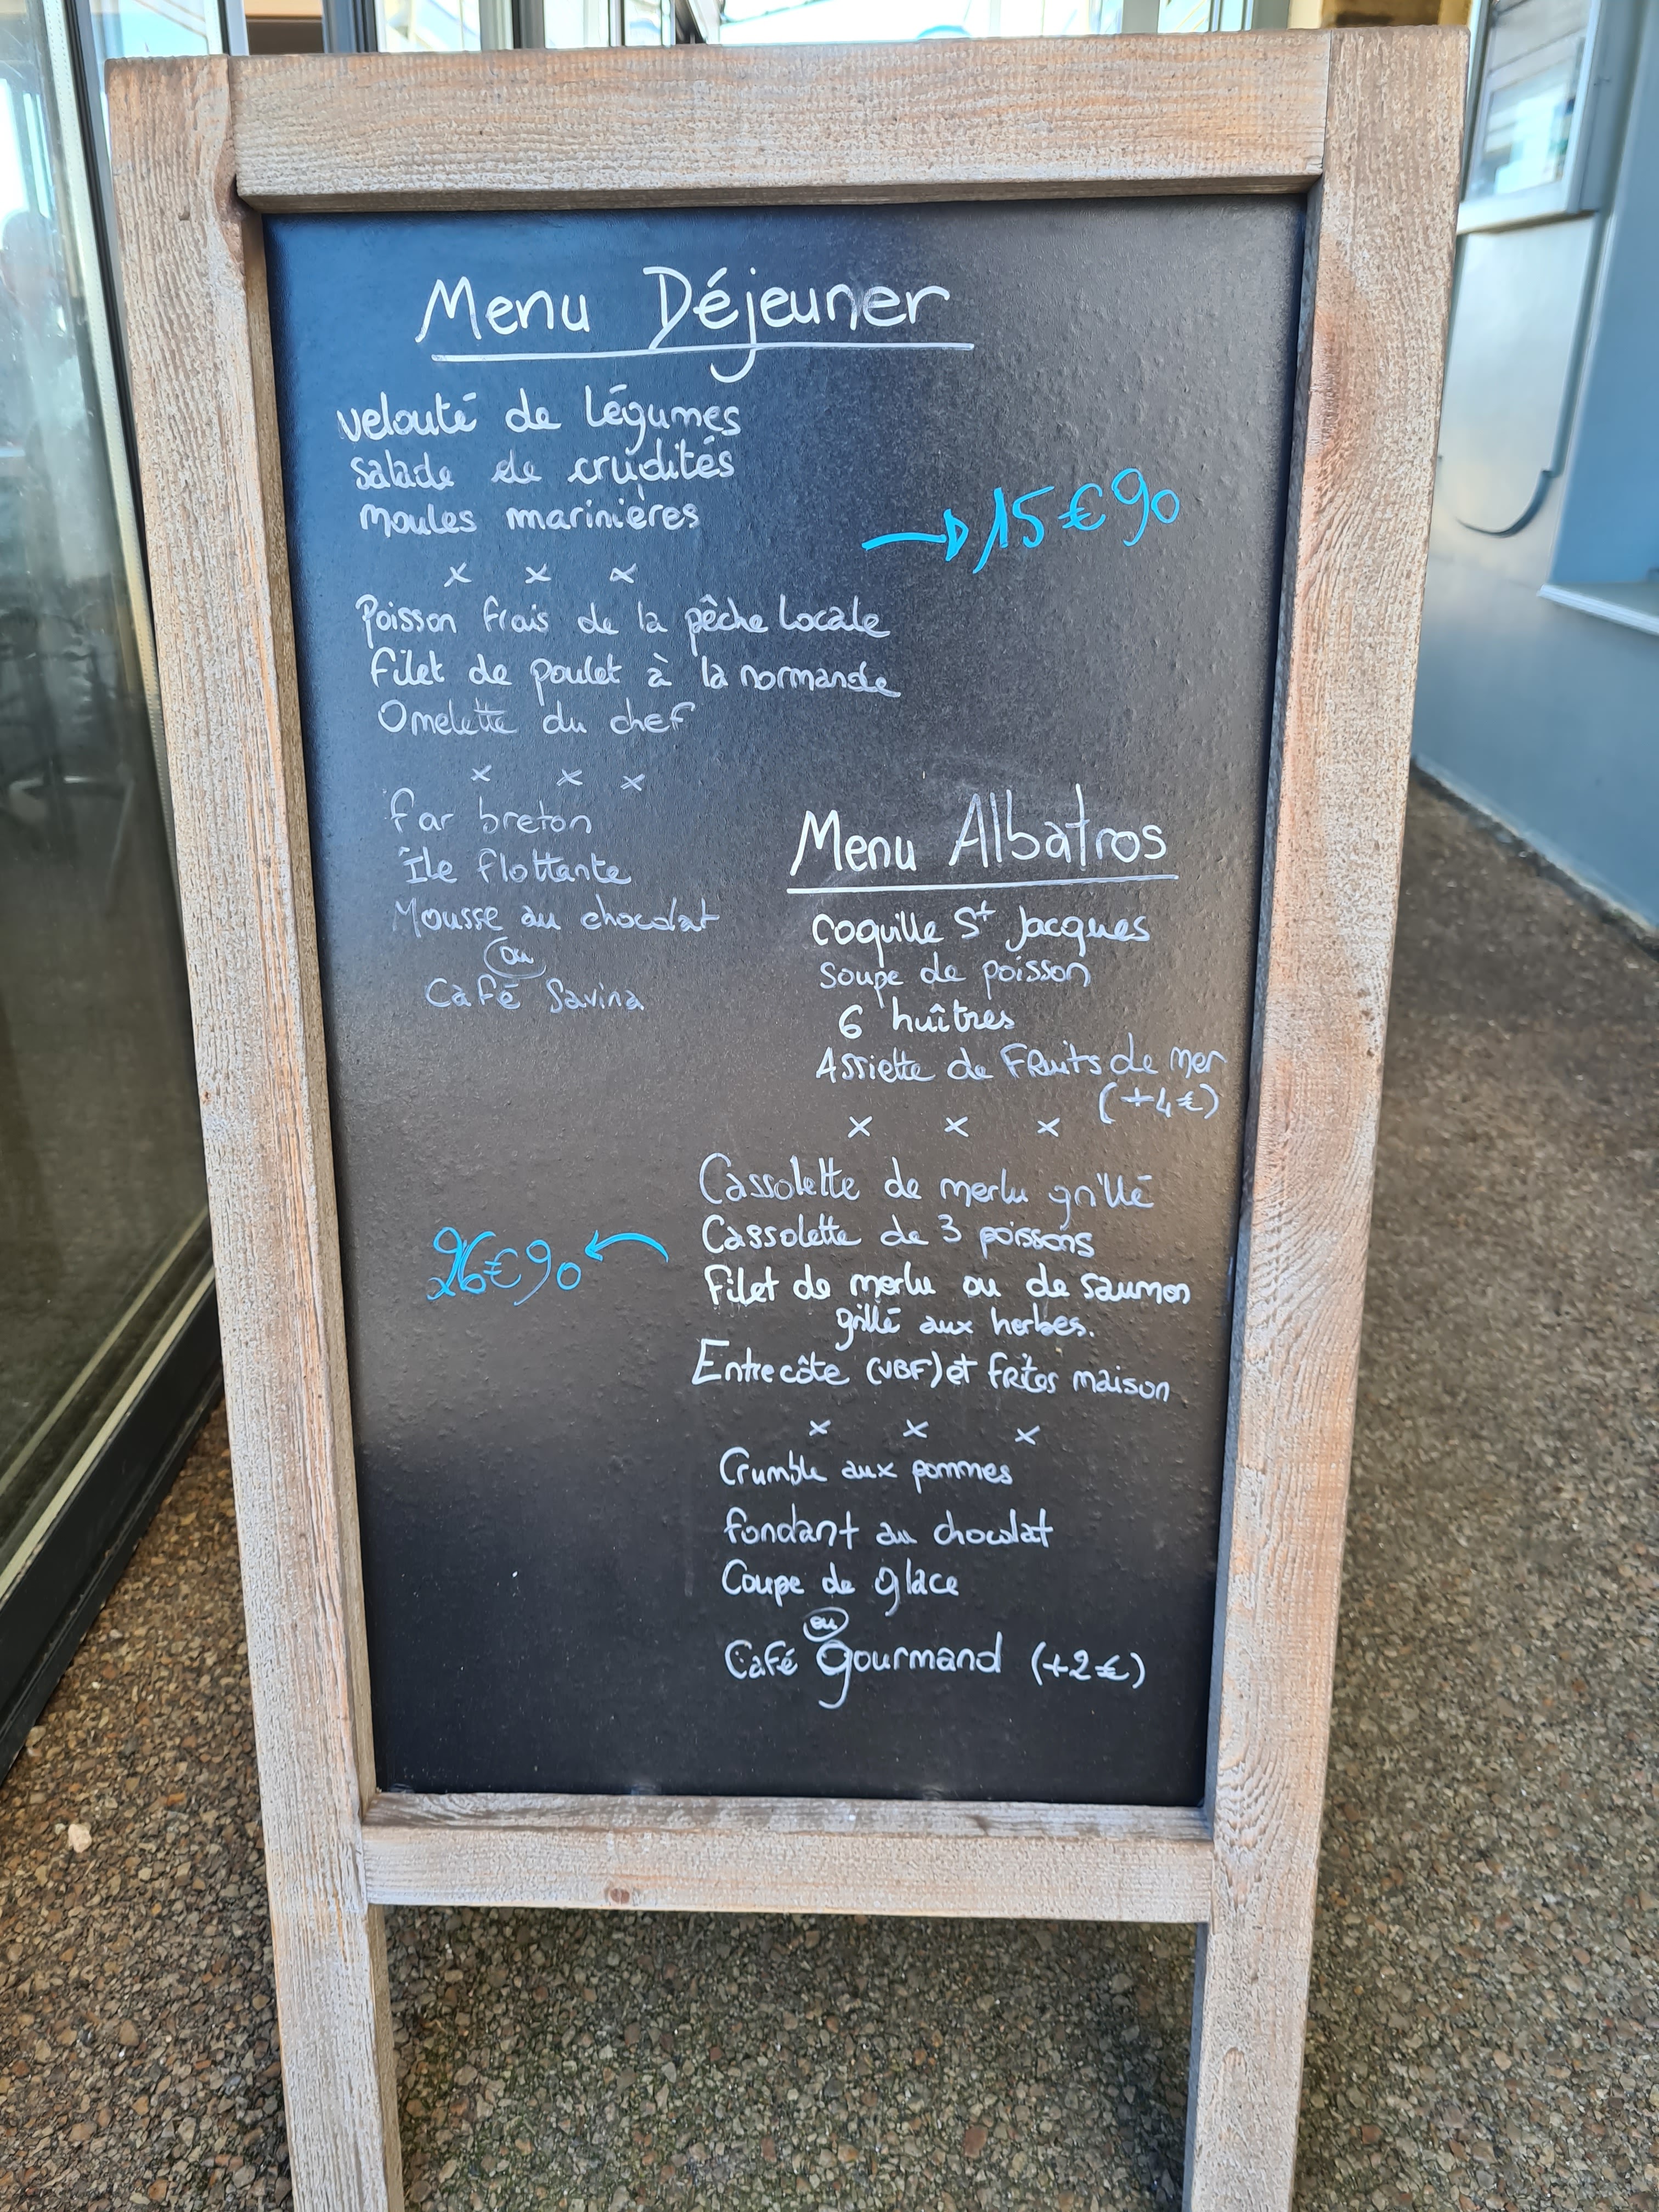 Menu Déjeuner
velouté de légumes
salade de crudités
Moules marinières
→ 15€90
x x x
Poisson frais de la pêche locale
Filet de poulet à la normande
Omelette du chef
x x x
Far breton
Île flottante
Mousse au chocolat
ou
Café Savina
Menu Albatros
Coquille St Jacques
Soupe de poisson
6 huîtres
Assiette de Fruits de mer
(+4€)
x x x
Cassolette de merlu grillé
Cassolette de 3 poissons
26€90 ←
Filet de merlu ou de saumon
grillé aux herbes.
Entrecôte (VBF) et frites maison
x x x
Crumble aux pommes
fondant au chocolat
Coupe de glace
ou
Café gourmand (+2€)